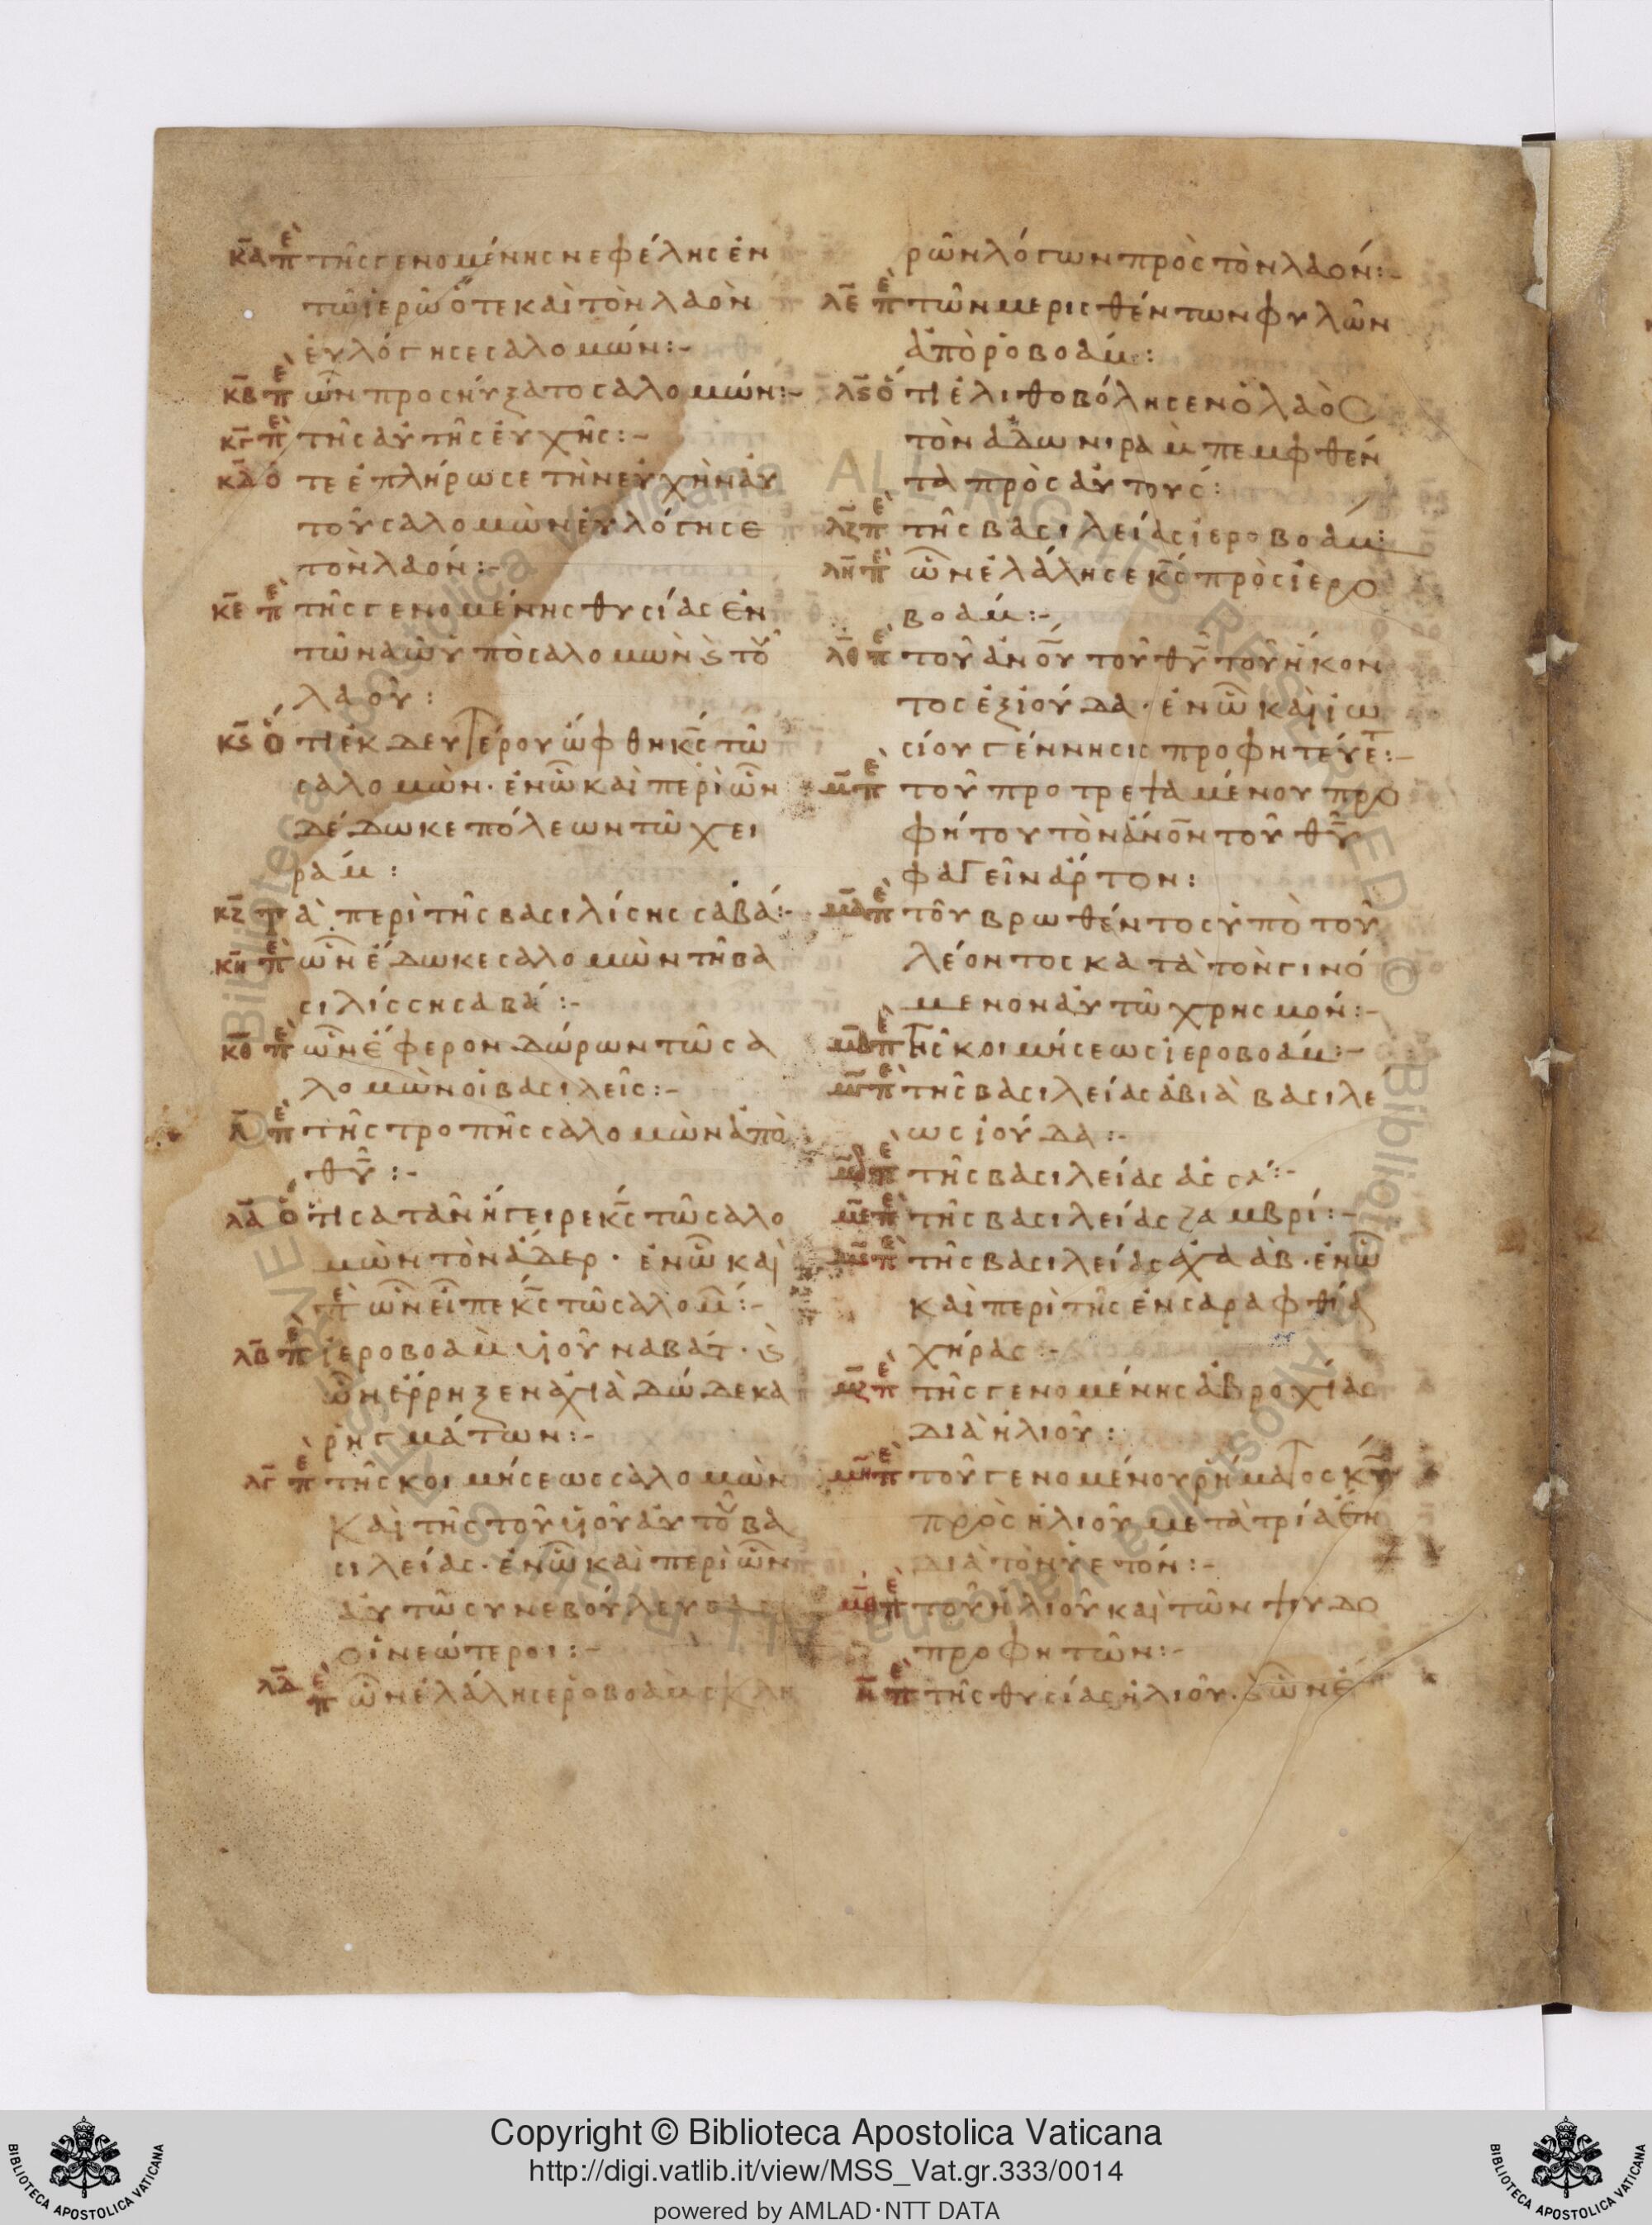 κ̅α̅ π̅ὲ τῆς γενομένης νεφέλης ἐν
τῶ ἱερῶ ὅτε καὶ τὸν λαὸν
ἐυλόγησε σαλομών:-
κ̅β̅ π̅ὲ ὧν προσηύξατο σαλομών:-
κ̅γ̅ π̅ὲ τῆς ἀυτῆς ἐυχῆς:-
κ̅δ̅ ὅτε ἐπλήρωσε τὴν ἐυχὴν ἀυ
τοῦ σαλομὼν ἐυλόγησε
τὸν λαόν:-
κ̅ε̅ π̅ὲ τῆς γενομένης θυσίας ἐν
τῶ ναῶ ὑπὸ σαλομὼν ϗ τοῦ
λαοῦ:
κ̅ς̅ ὅτι ἐκ δευτέρου ὤφθη κ̅ς̅ τῶ
σαλομὼν· ἐν ὧ καὶ περὶ ὧν
δέδωκε πόλεων τῶ χει
ράμ:
κ̅ζ̅ τὰ περὶ τῆς βασιλίσης σαβά:-
κ̅η̅ π̅ὲ ὧν ἔδωκε σαλομὼν τῆ βα
σιλίσση σαβά:-
κ̅θ̅ π̅ὲ ὧν ἔφερον δώρων τῶ σα
λομὼν οἱ βασιλεῖς:-
λ̅ π̅ὲ τῆς τροπῆς σαλομὼν ἀπὸ
θ̅υ̅:-
λ̅α̅ ὅτι σατᾶν ἤγειρε κ̅ς̅ τῶ σαλο
μὼν τὸν ἄδερ· ἐν ὧ καὶ
π̅ὲ ὧν εἶπε κ̅ς̅ τῶ σαλομ̅:-
λ̅β̅ π̅ὲ ἱεροβοὰμ υἱοῦ ναβάτ· ϗ
ὧν ἔρρηξεν ἀχιὰ δώδεκα
ῥηγμάτων:-
λ̅γ̅ π̅ὲ τῆς κοιμήσεως σαλομὼν
καὶ τῆς τοῦ υἱοῦ ἀυτοῦ βα
σιλείας· ἐν ὧ καὶ περὶ ὧν
ἀυτῶ συνεβούλευσαν
οἱ νεώτεροι:-
λ̅δ̅ π̅ὲ ὧν ἐλάλησε ῥοβοὰμ σκλη
ρῶν λόγων πρὸς τὸν λαόν:-
λ̅ε̅ π̅ὲ τῶν μερισθέντων φυλῶν
ἀπὸ ῥοβοάμ:
λ̅ς̅ ὅτι ἐλιθοβόλησεν ὁ λαὸς
τὸν ἀδωνιρὰμ πεμφθέν
τα πρὸς ἀυτούς:
λ̅ζ̅ π̅ὲ τῆς βασιλείας ἱεροβοάμ:
λ̅η̅ π̅ὲ ὧν ἐλάλησε κ̅ς̅ πρὸς ἱερο
βοάμ:-
λ̅θ̅ π̅ὲ τοῦ ἀν̅ο̅υ̅ τοῦ θ̅υ̅ τοῦ ἥκον
τος ἐξ ἰούδα· ἐν ὧ καὶ ἰω
σίου γέννησις προφητέυετ:-
μ̅ π̅ὲ τοῦ προτρεψαμένου προ
φήτου τὸν ἄν̅ο̅ν̅ τοῦ θ̅υ̅
φαγεῖν ἄρτον:
μ̅α̅ π̅ὲ τοῦ βρωθέντος ὑπὸ τοῦ
λέοντος κατὰ τὸν γινό
μενον ἀυτῶ χρησμόν:-
μ̅β̅ π̅ὲ τῆς κοιμήσεως ἱεροβοάμ:-
μ̅γ̅ π̅ὲ τῆς βασιλείας ἀβιὰ βασιλέ
ως ἰούδα:-
μ̅δ̅ π̅ὲ τῆς βασιλείας ἀσσά:-
μ̅ε̅ π̅ὲ τῆς βασιλείας ζαμβρί:-
μ̅ς̅ π̅ὲ τῆς βασιλείας ἀχαάβ· ἐν ὧ
καὶ περὶ τῆς ἐν σαραφθία
χήρας:-
μ̅ζ̅ π̅ὲ τῆς γενομένης ἀβροχίας
διὰ ἠλιοῦ:
μ̅η̅ π̅ὲ τοῦ γενομένου ῥήματος κ̅υ̅
πρὸς ἠλιοῦ μετὰ τρία ἔτη
διὰ τὸν ὑετόν:-
μ̅θ̅ π̅ὲ τοῦ ἠλιοῦ καὶ τῶν ψυδο
προφητῶν:-
ν̅ π̅ὲ τῆς θυσίας ἠλιοῦ· ϗ ὧν ἐ
Copyright © Biblioteca Apostolica Vaticana
http://digi.vatlib.it/view/MSS_Vat.gr.333/0014
powered by AMLAD·NTT DATA
BIBLIOTECA APOSTOLICA VATICANA
BIBLIOTECA APOSTOLICA VATICANA